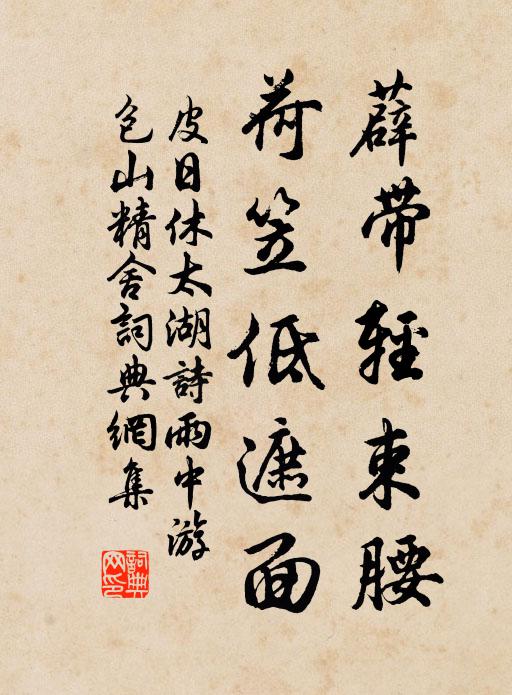 薜帶輕束腰
荷笠低遮面
皮日休太湖詩雨中游
包山精舍詞典網集
詞典网印